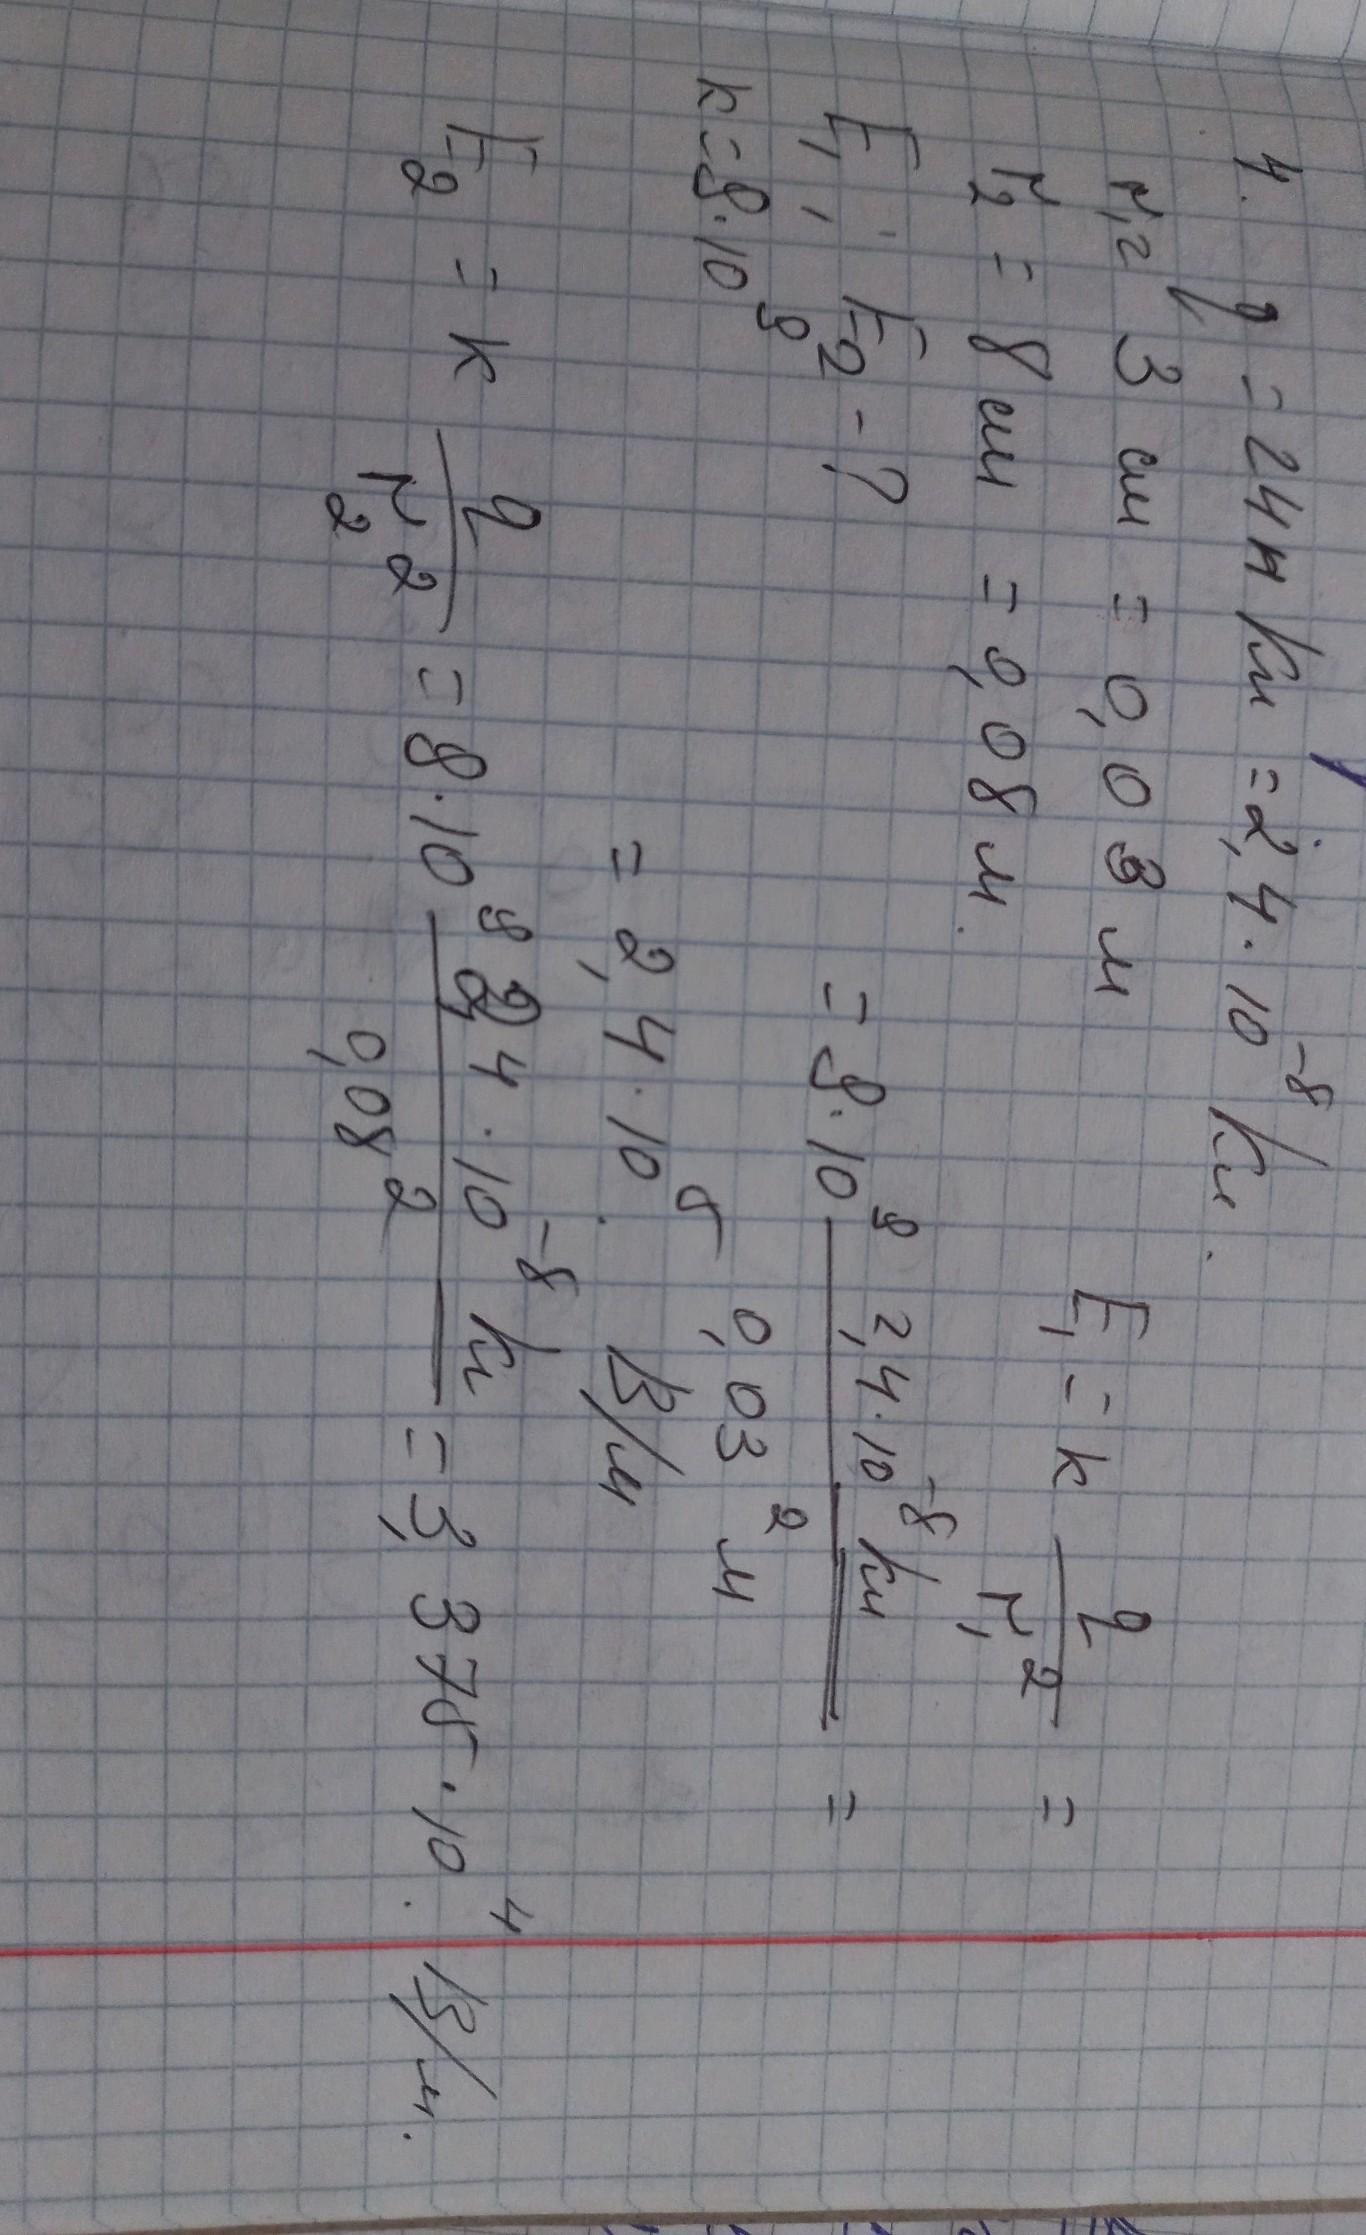 4. q = 24 нКл = 2,4 · 10⁻⁸ Кл.
r₁ = 3 см = 0,03 м
r₂ = 8 см = 0,08 м.
E₁, E₂ - ?
k = 9 · 10⁹
E₁ = k q / r₁² =
= 9 · 10⁹ 2,4 · 10⁻⁸ Кл / 0,03² м =
= 2,4 · 10⁵ В/м
E₂ = k q / r₂² = 8 · 10⁹ 2,4 · 10⁻⁸ Кл / 0,08² = 3,375 · 10⁴ В/м.